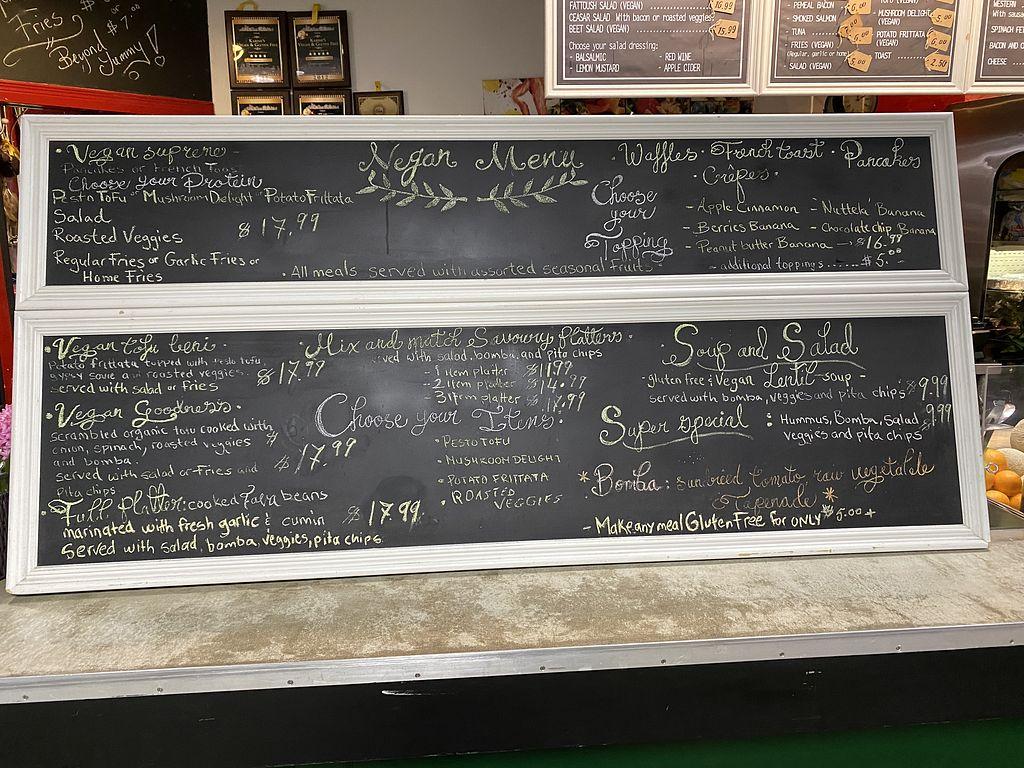 Fries
Beyond
Yummy!
FATTOUSH SALAD (VEGAN)
CEASAR SALAD With bacon or roasted veggies
BEET SALAD (VEGAN)
16.99
15.99
Choose your salad dressing:
- BALSALMIC - RED WINE
- LEMON MUSTARD - APPLE CIDER
- PEMEAL BACON
- SMOKED SALMON
- TUNA
- FRIES (VEGAN)
(Regular, garlic or home)
- SALAD (VEGAN)
- MUSHROOM DELIGHT
(VEGAN)
POTATO FRITTATA
(VEGAN)
TOAST
6.00
5.00
5.00
6.00
2.50
WESTERN
SPINACH
BACON AND
CHEESE
Vegan Menu
• Vegan supreme -
Pancakes or French Toast
Choose your Protein
Pesto Tofu or Mushroom Delight or Potato Frittata
Salad
Roasted Veggies
$17.99
Regular Fries or Garlic Fries or
Home Fries
• All meals served with assorted seasonal fruits -
• Waffles • French toast • Pancakes
• Crepes •
Choose
your
Topping
- Apple Cinnamon - Nuttela Banana
- Berries Banana - Chocolate chip Banana
- Peanut butter Banana → $16.99
- additional toppings ...... $5.00 -
• Vegan tofu beni •
Potato frittata topped with pesto tofu
sauce and roasted veggies.
served with salad or fries
$17.99
• Vegan Goodness •
scrambled organic tofu cooked with
onion, spinach, roasted veggies
and bomba.
served with salad or Fries and
pita chips
$17.99
• Full Platter: cooked fava beans
marinated with fresh garlic & cumin
served with salad, bomba, veggies, pita chips
$17.99
• Mix and match Savoury Platters •
served with salad, bomba, and pita chips
- 1 item platter $11.99
- 2 Item platter $14.99
- 3 Item platter $17.99
Choose your Items
• PESTO TOFU
• MUSHROOM DELIGHT
• POTATO FRITTATA
• ROASTED
VEGGIES
Soup and Salad
- gluten free & Vegan Lentil soup -
served with bomba, veggies and pita chips $9.99
Super special
: Hummus, Bomba, Salad 9.99
veggies and pita chips
* Bomba: sundried tomato, raw vegetable
Tapenade *
- Make any meal Gluten Free for ONLY $5.00 +